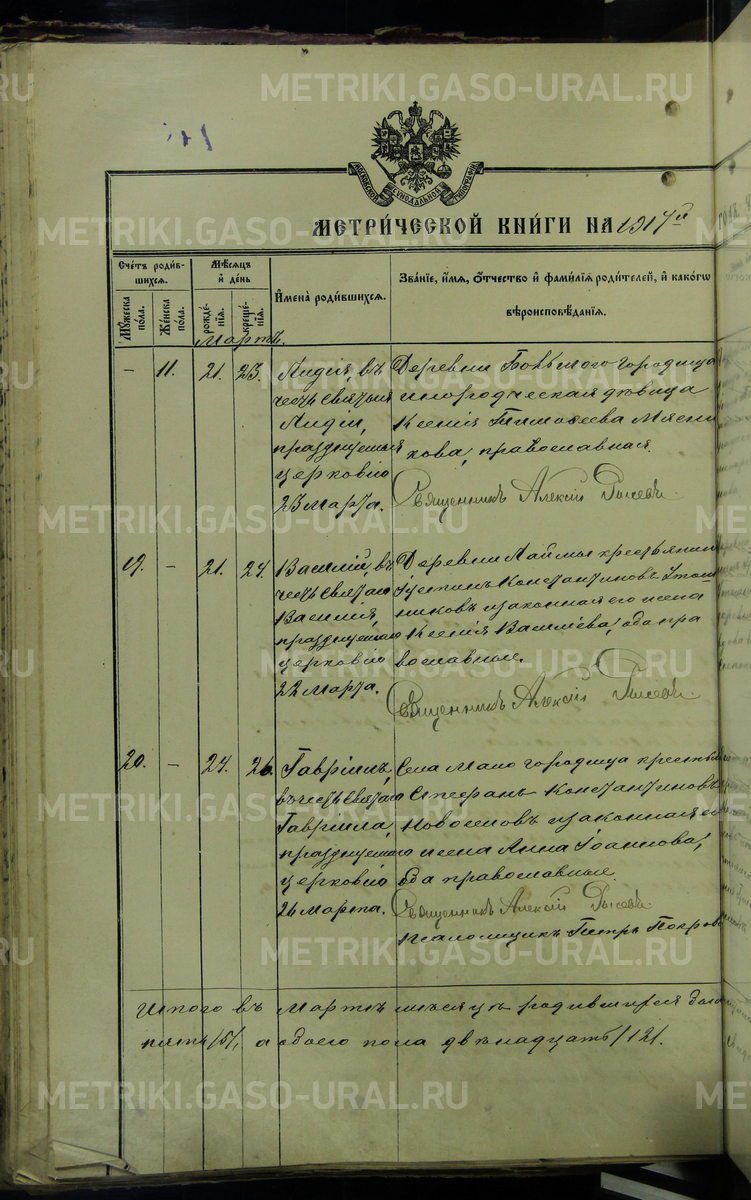 METRIKI.GASO-URAL.RU
МОСКОВСКОЙ СУНОДАЛЬНОЙ ТИПОГРАФIИ
МЕТРИ́ЧЕСКОЙ КНИ́ГИ НА 1917й
Сче́тъ роди́вшихся.
Мꙋжеска по́ла.
Же́нска по́ла.
Мѣ́сяцъ и҆ де́нь
рожде́нїѧ.
креще́нїѧ.
И҆мена̀ роди́вшихся.
Зва́нїе, и҆́мѧ, ѻ҆́тчество и҆ фами́лїѧ роди́телей, и҆ како́гѡ
вѣроисповѣ́данїѧ.
Мартъ.
– 11. 21. 23. Лидія, въ
честь святыя
Лидіи,
празднуемыя
церковію
23 марта.
Деревни Городища
инородческая дѣвица
Ксенія Тимоѳеева Мясни
кова, православная.
Священникъ Алексій
19. – 21. 24. Василій, въ
честь святаго
Василія,
празднуемаго
церковію
22 марта.
Деревни крестьянин
Константиновъ
никовъ и законная его жена
Ксенія Василіева, оба пра
вославные.
Священникъ Алексій
20. – 24. 26. Гавріилъ,
въ честь святаго
Гавріила,
празднуемаго
церковію
26 марта.
Села Мало городища крестьян
Стефанъ Константиновъ
Новоселовъ и законная ег
жена Анна Іоаннова,
оба православные.
Священникъ Алексій
Псаломщикъ Петръ Покров
Итого въ Мартѣ мѣсяцѣ родившихся
пять /5/, а обоего пола двѣнадцать /12/.